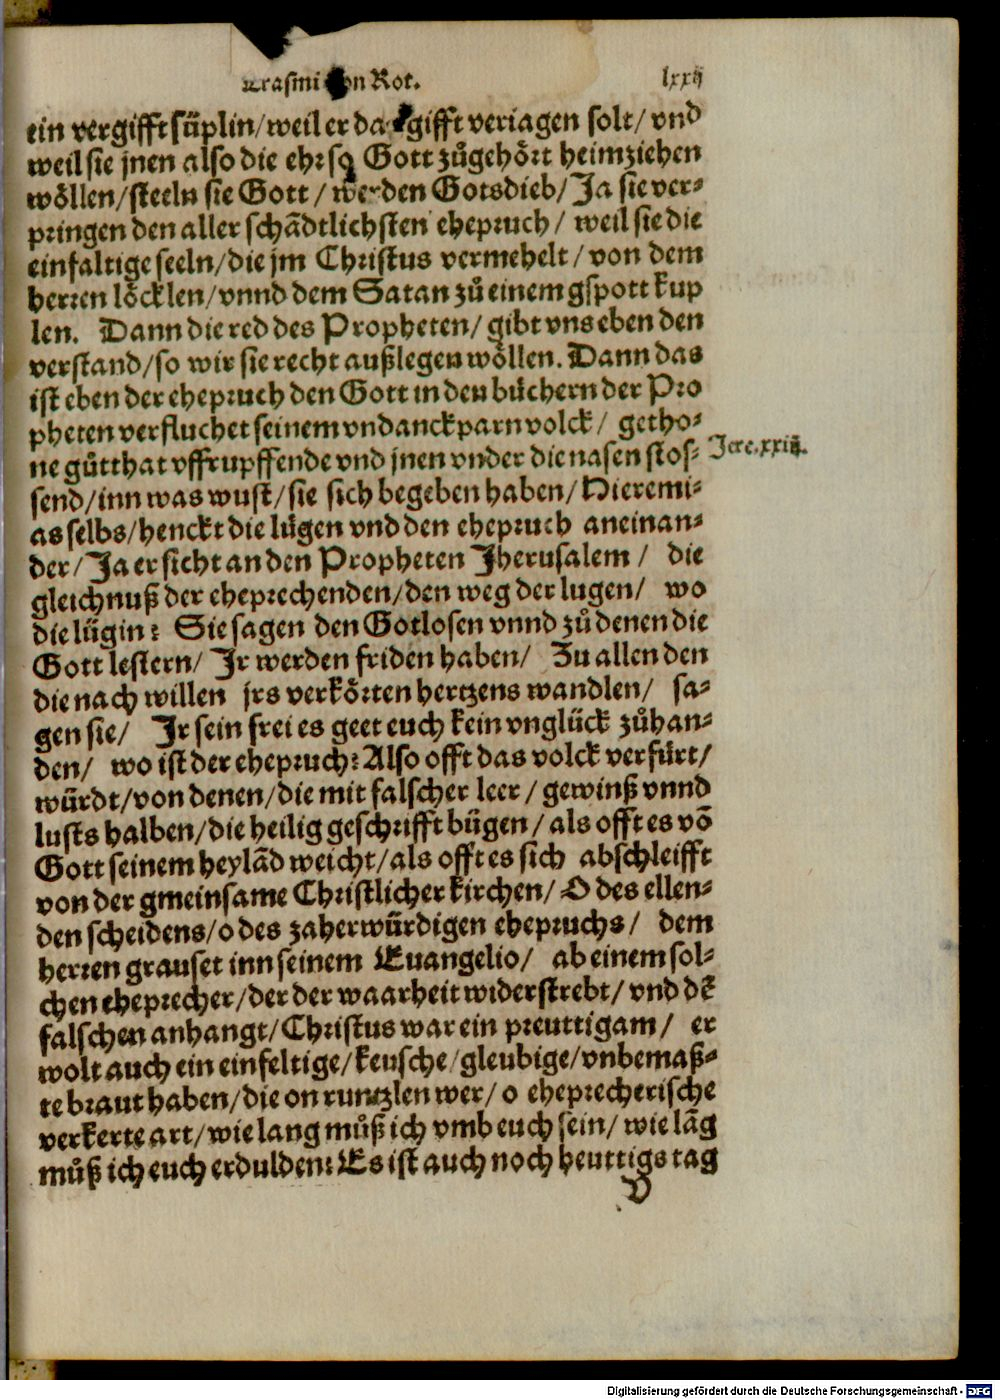 Erasmi von Rot. lxxij
ein vergifft süplin/weil er das gifft veriagen solt/vnd
weil sie jnen also die ehr so Gott zůgehört heimziehen
wöllen/steeln sie Gott/werden Gotsdieb/Ja sie ver⸗
pringen den aller schädtlichsten ehepruch/ weil sie die
einfaltige seeln/die jm Christus vermehelt/von dem
herren löcklen/vnnd dem Satan zů einem gspott kup
len. Dann die red des Propheten/gibt vns eben den
verstand/so wir sie recht außlegen wöllen. Dann das
ist eben der ehepruch den Gott in den büchern der Pro
pheten verfluchet seinem vndanckparn volck/ getho⸗
ne gůtthat vffrupffende vnd jnen vnder die nasen stos⸗
Jere.xxiij.
send/inn was wust/sie sich begeben haben/Hieremi⸗
as selbs/henckt die lügen vnd den ehepruch aneinan⸗
der/Ja er sicht an den Propheten Jherusalem/ die
gleichnuß der eheprechenden/den weg der lugen/ wo
die lügin? Sie sagen den Gotlosen vnnd zů denen die
Gott lestern/ Jr werden friden haben/ Zu allen den
die nach willen jrs verkörten hertzens wandlen/ sa⸗
gen sie/ Jr sein frei es geet euch kein vnglück zůhan⸗
den/ wo ist der ehepruch? Also offt das volck verfürt/
würdt/von denen/die mit falscher leer/gewinß vnnd
lusts halben/die heilig geschrifft bügen/als offt es võ
Gott seinem heylãd weicht/als offt es sich abschleifft
von der gmeinsame Christlicher kirchen/O des ellen⸗
den scheidens/o des zaherwürdigen ehepruchs/ dem
herren grauset inn seinem Euangelio/ ab einem sol⸗
chen eheprecher/der der waarheit widerstrebt/vnd dẽ
falschen anhangt/Christus war ein preuttigam/ er
wolt auch ein einfeltige/keusche/gleubige/vnbemaß⸗
te braut haben/die on runtzlen wer/o eheprecherische
verkerte art/wie lang můß ich vmb euch sein/wie lãg
můß ich euch erdulden? Es ist auch noch heuttigs tag
V
Digitalisierung gefördert durch die Deutsche Forschungsgemeinschaft - DFG